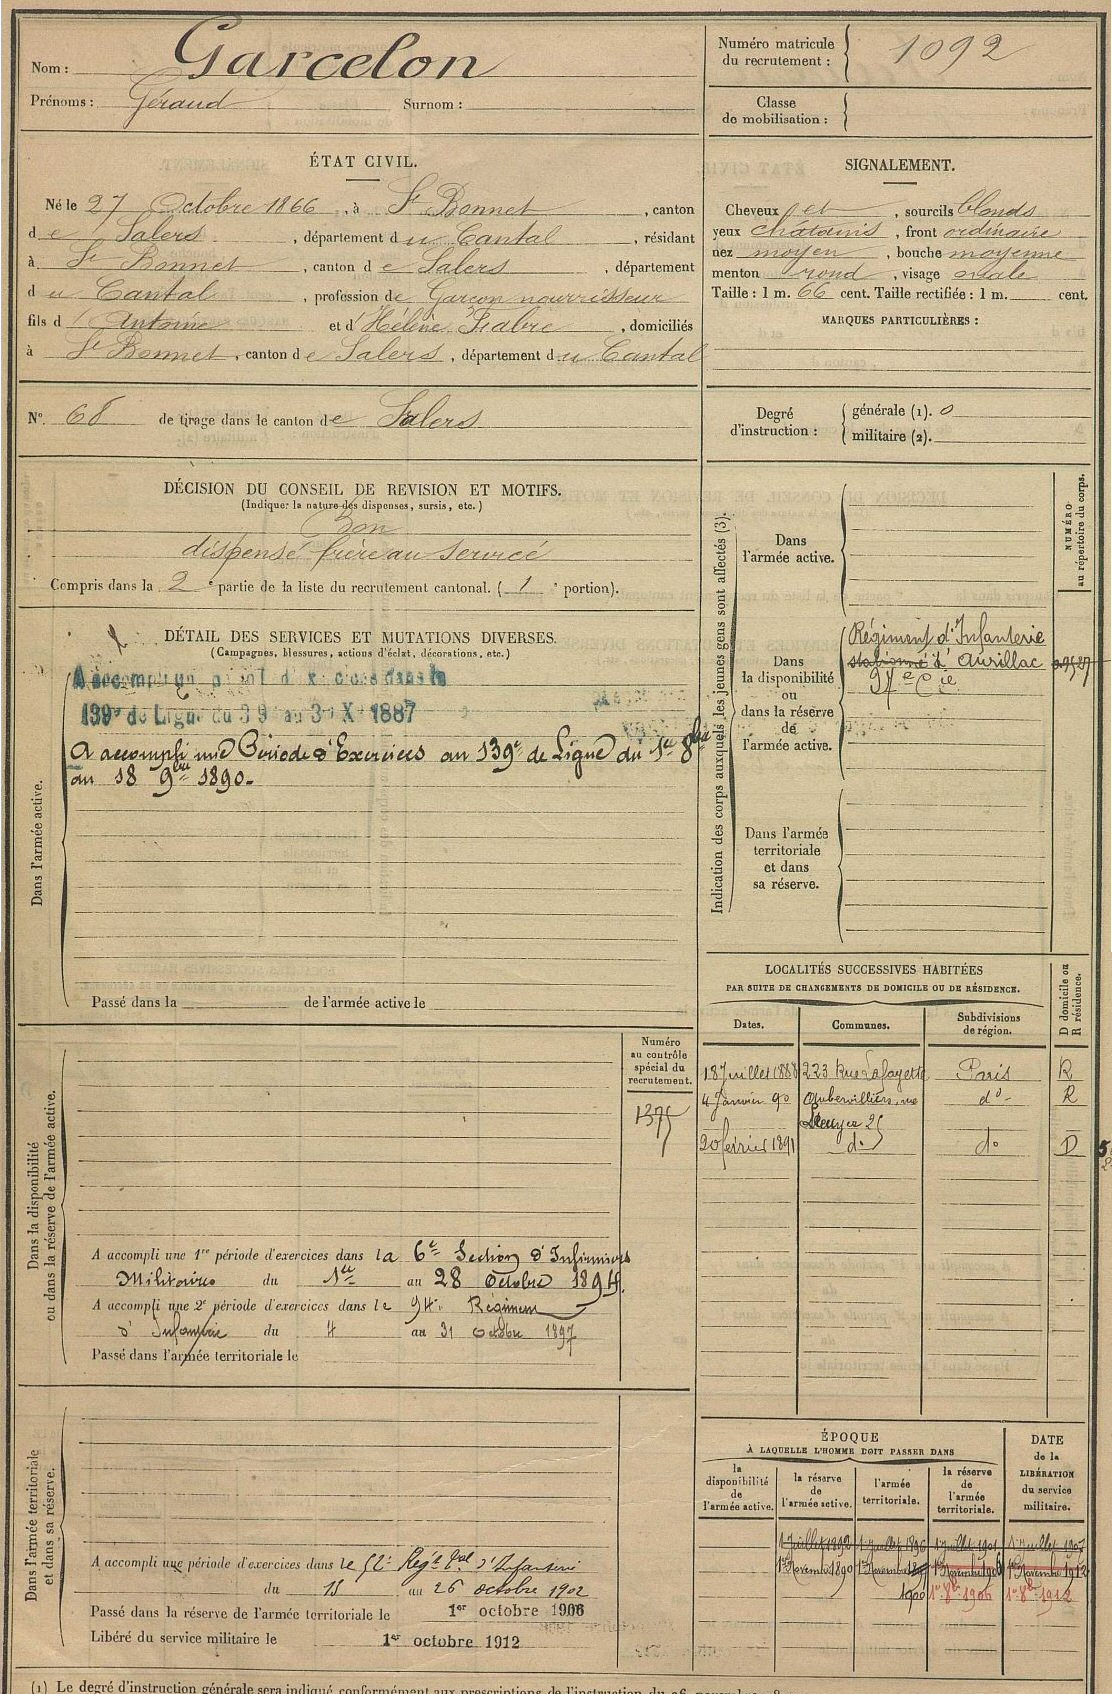 Nom : Garcelon
Prénoms : Géraud Surnom :
Numéro matricule
du recrutement : 1092
Classe
de mobilisation :
ÉTAT CIVIL.
Né le 27 Octobre 1866, à St Bonnet, canton
de Salers, département du Cantal, résidant
à St Bonnet, canton de Salers, département
du Cantal, profession de Garçon nourrisseur
fils d'Antoine et d'Hélène Fabre, domiciliés
à St Bonnet, canton de Salers, département du Cantal
SIGNALEMENT.
Cheveux et, sourcils blonds
yeux chatains, front ordinaire
nez moyen, bouche moyenne
menton rond, visage ovale
Taille : 1 m. 66 cent. Taille rectifiée : 1 m. cent.
MARQUES PARTICULIÈRES :
N° 68 de tirage dans le canton de Salers
Degré
d'instruction :
générale (1). 0
militaire (2).
DÉCISION DU CONSEIL DE REVISION ET MOTIFS.
(Indiquer la nature des dispenses, sursis, etc.)
Bon
dispensé frère au service
Compris dans la 2e partie de la liste du recrutement cantonal. (1e portion).
DÉTAIL DES SERVICES ET MUTATIONS DIVERSES.
(Campagnes, blessures, actions d'éclat, décorations, etc.)
Dans l'armée active.
A accompli un
139e de Ligne du 3 9 au 3 X 1887
A accompli une Période d'Exercices au 139e de Ligne du 1er 8bre
au 18 9bre 1890.
Passé dans la de l'armée active le
Indication des corps auxquels les jeunes gens sont affectés (3).
NUMÉRO
au répertoire du corps.
Dans
l'armée active.
Dans
la disponibilité
ou
dans la réserve
de
l'armée active.
Régiment d'Infanterie
stationné à Aurillac
97e Cie
Dans l'armée
territoriale
et dans
sa réserve.
LOCALITÉS SUCCESSIVES HABITÉES
PAR SUITE DE CHANGEMENTS DE DOMICILE OU DE RÉSIDENCE.
Dates. Communes. Subdivisions
de région.
D domicile ou
R résidence.
18 Juillet 1888 223 Rue Lafayette Paris R
4 Janvier 90 Aubervilliers, rue do R
20 février 1891 do do D
Dans la disponibilité
ou dans la réserve de l'armée active.
Numéro
au contrôle
spécial du
recrutement.
1375
A accompli une 1re période d'exercices dans la 6e Section d'Infirmiers
Militaires du 1er au 28 Octobre 1894.
A accompli une 2e période d'exercices dans le 94e Régiment
d'Infanterie du 4 au 31 Octobre 1897
Passé dans l'armée territoriale le
Dans l'armée territoriale
et dans sa réserve.
A accompli une période d'exercices dans le 52e Régt tal d'Infanterie
du 13 au 26 octobre 1902
Passé dans la réserve de l'armée territoriale le 1er octobre 1906
Libéré du service militaire le 1er octobre 1912
ÉPOQUE
À LAQUELLE L'HOMME DOIT PASSER DANS
la
disponibilité
de
l'armée active.
la réserve
de
l'armée active.
l'armée
territoriale.
la réserve
de
l'armée
territoriale.
DATE
de la
LIBÉRATION
du service
militaire.
1 Juillet 1892 1 juillet 1896 1 juillet 1901 1 juillet 1907
1er Novembre 1890 1er Novembre 1897 1er Novembre 1906 1er Novembre 1912
1900 1er 8bre 1906 1er 8bre 1912
(1) Le degré d'instruction générale sera indiqué conformément aux prescriptions de l'instruction du 26 novembre